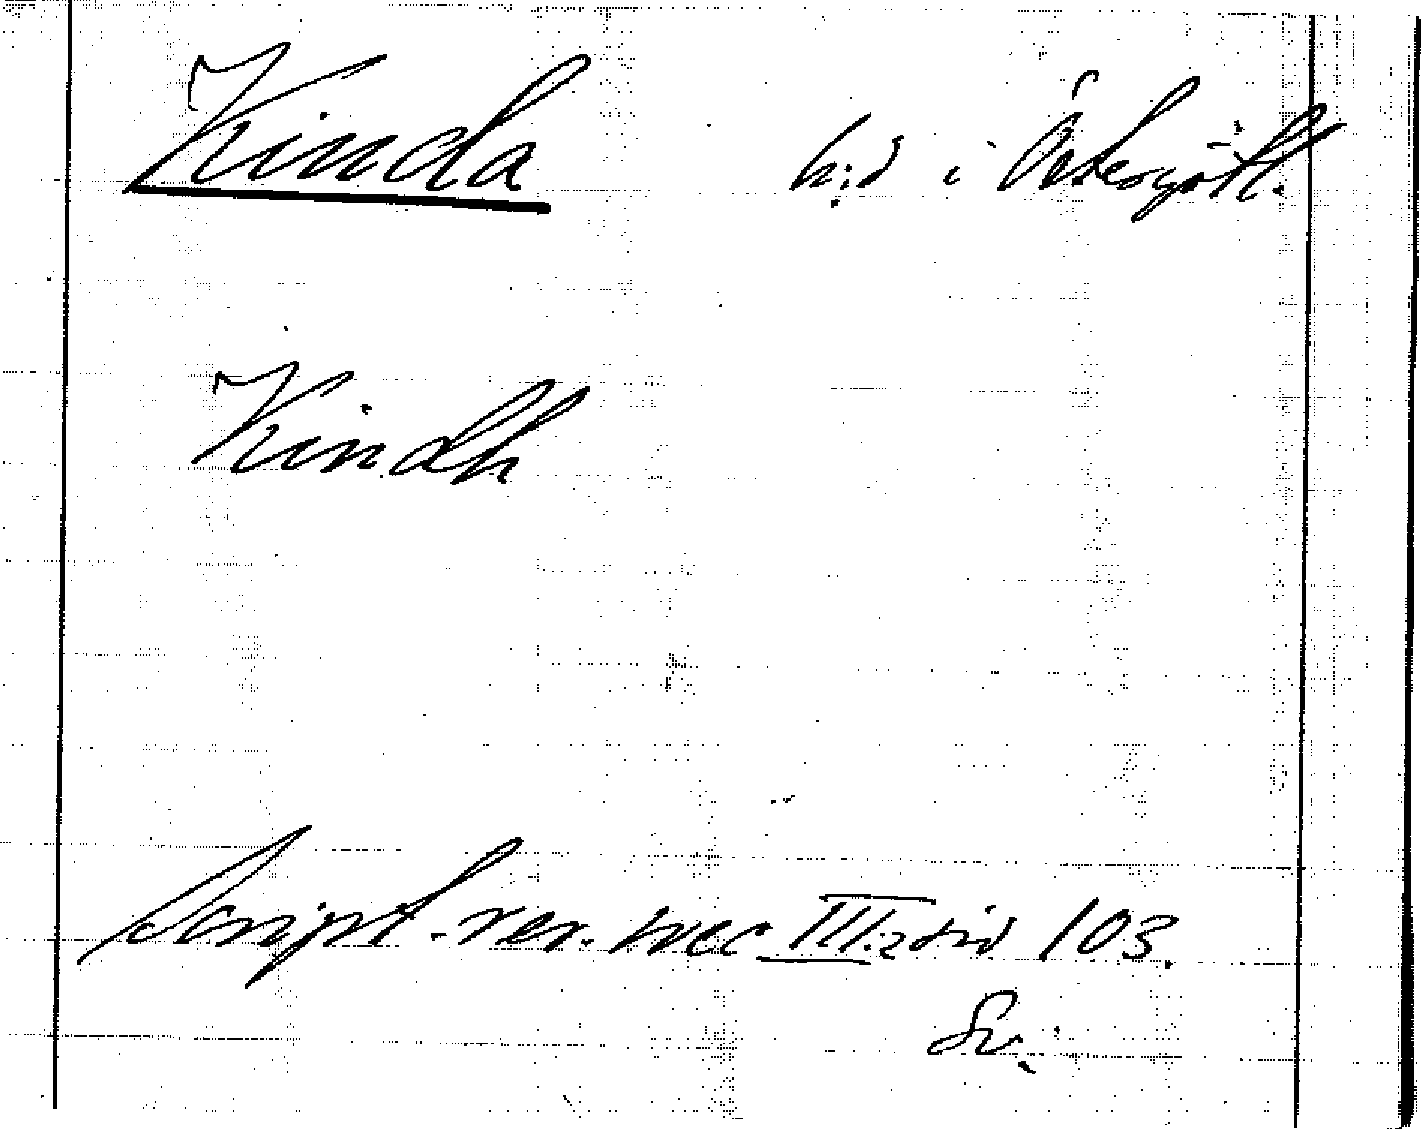 Kinda h:d i Östergötl.
Kindh
Script. rer. svec III:2 sid 103.